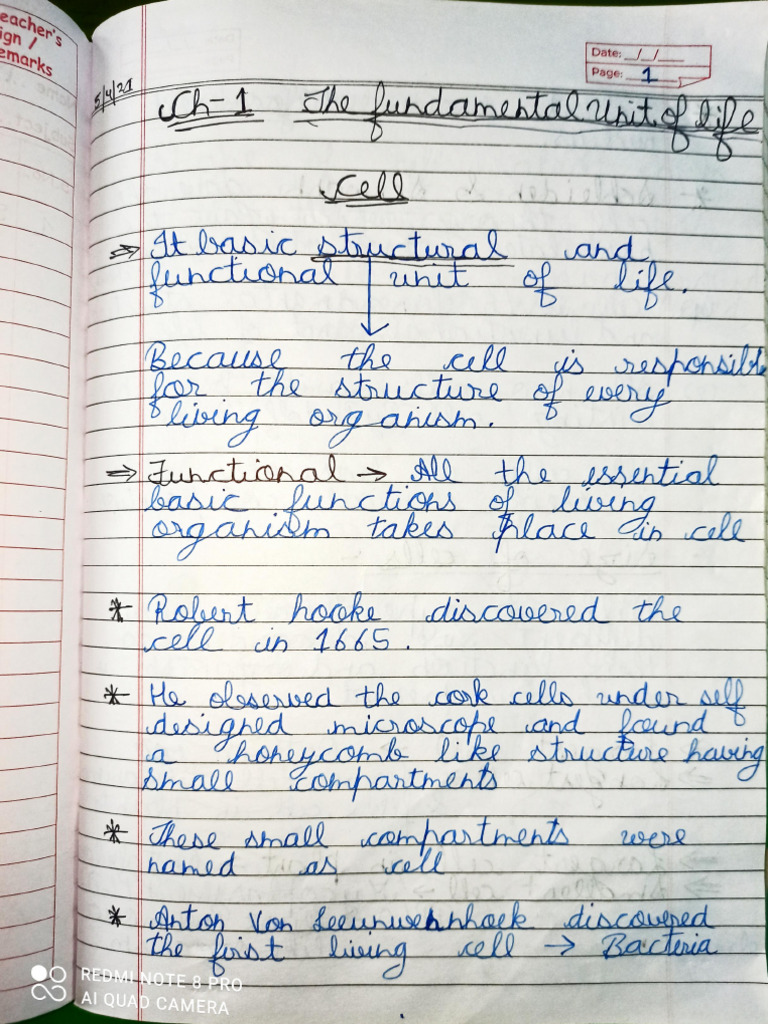 Teacher's
Sign /
Remarks
Date: _/_/___
Page: 1
5/4/21
Ch-1 The fundamental Unit of life
Cell
⇒ It basic structural and
functional unit of life.
Because the cell is responsible
for the structure of every
living organism.
⇒ Functional → All the essential
basic functions of living
organism takes place in cell
* Robert hooke discovered the
cell in 1665.
* He observed the cork cells under self
designed microscope and found
a honeycomb like structure having
small compartments
* These small compartments were
named as cell
* Anton Von Leeunwenhhoek discovered
the first living cell → Bacteria
REDMI NOTE 8 PRO
AI QUAD CAMERA